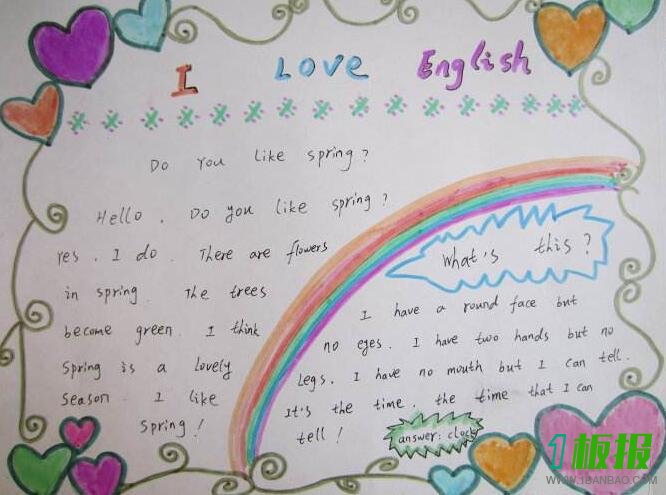 I Love English
Do you like spring?
Hello. Do you like spring?
Yes. I do. There are flowers
in spring. The trees
become green. I think
Spring is a lovely
Season. I like
Spring!
What's this?
I have a round face but
no eyes. I have two hands but no
legs. I have no mouth but I can tell.
It's the time. the time that I can
tell!
answer: clock
1板报
WWW.1BANBAO.COM